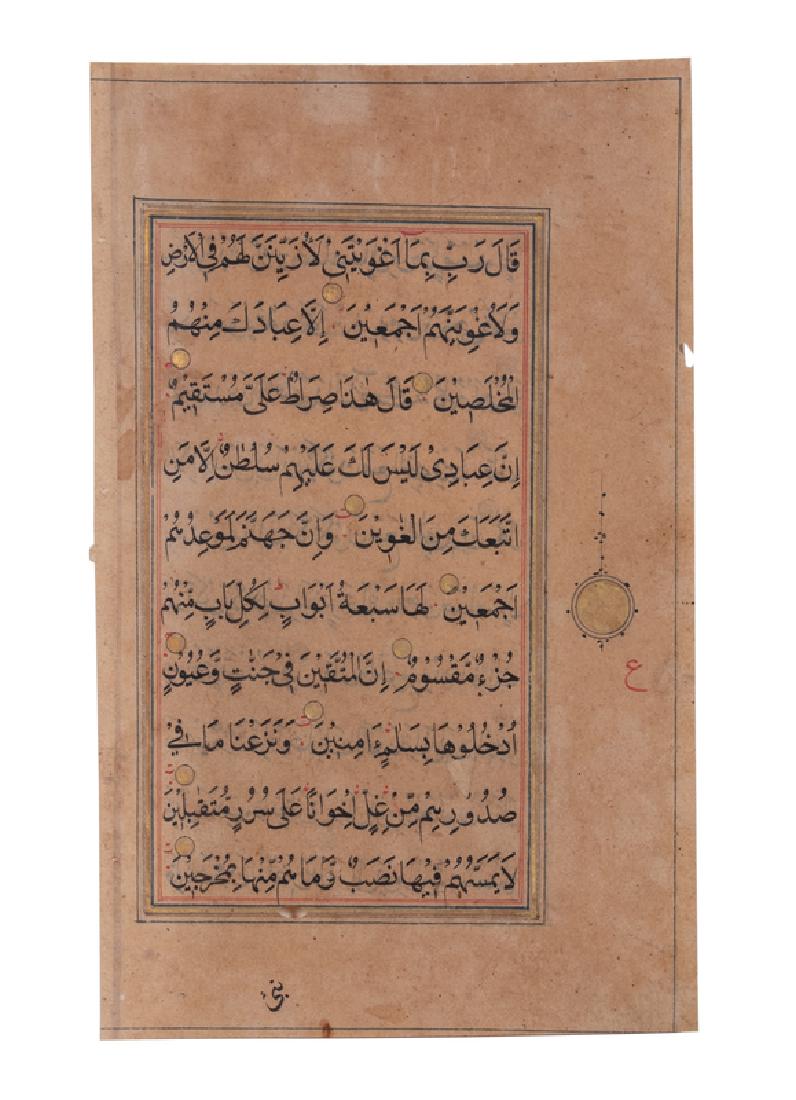 قَالَ رَبِّ بِمَا اَغْوَيْتَنِىْ لَاُزَيِّنَنَّ لَهُمْ فِى الْاَرْضِ
وَلَاُغْوِيَنَّهُمْ اَجْمَعِيْنَ اِلَّا عِبَادَكَ مِنْهُمُ
الْمُخْلَصِيْنَ قَالَ هٰذَا صِرَاطٌ عَلَىَّ مُسْتَقِيْمٌ
اِنَّ عِبَادِىْ لَيْسَ لَكَ عَلَيْهِمْ سُلْطٰنٌ اِلَّا مَنِ
اتَّبَعَكَ مِنَ الْغٰوِيْنَ وَاِنَّ جَهَنَّمَ لَمَوْعِدُهُمْ
اَجْمَعِيْنَ لَهَا سَبْعَةُ اَبْوَابٍ لِكُلِّ بَابٍ مِّنْهُمْ
جُزْءٌ مَّقْسُوْمٌ اِنَّ الْمُتَّقِيْنَ فِىْ جَنّٰتٍ وَّعُيُوْنٍ
اُدْخُلُوْهَا بِسَلٰمٍ اٰمِنِيْنَ وَنَزَعْنَا مَا فِىْ
صُدُوْرِهِمْ مِّنْ غِلٍّ اِخْوَانًا عَلٰى سُرُرٍ مُّتَقٰبِلِيْنَ
لَا يَمَسُّهُمْ فِيْهَا نَصَبٌ وَّمَا هُمْ مِّنْهَا بِمُخْرَجِيْنَ
ع